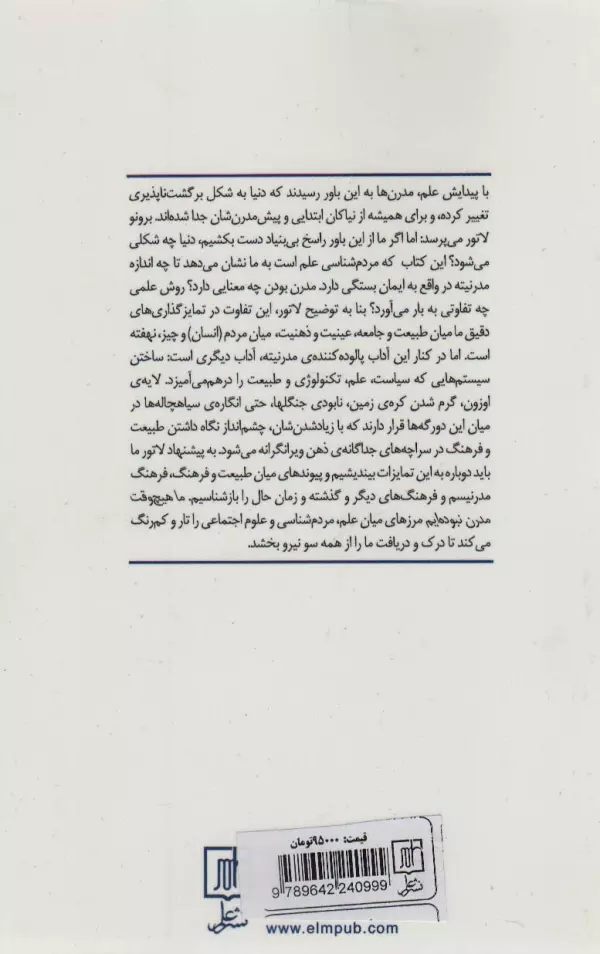 با پیدایش علم، مدرن‌ها به این باور رسیدند که دنیا به شکل برگشت‌ناپذیری
تغییر کرده، و برای همیشه از نیاکان ابتدایی و پیش‌مدرن‌شان جدا شده‌اند. برونو
لاتور می‌پرسد: اما اگر ما از این باور راسخ بی‌بنیاد دست بکشیم، دنیا چه شکلی
می‌شود؟ این کتاب که مردم‌شناسی علم است به ما نشان می‌دهد تا چه اندازه
مدرنیته در واقع به ایمان بستگی دارد. مدرن بودن چه معنایی دارد؟ روش علمی
چه تفاوتی به بار می‌آورد؟ بنا به توضیح لاتور، این تفاوت در تمایزگذاری‌های
دقیق ما میان طبیعت و جامعه، عینیت و ذهنیت، میان مردم (انسان) و چیز، نهفته
است. اما در کنار این آداب پالوده‌کننده‌ی مدرنیته، آداب دیگری است: ساختن
سیستم‌هایی که سیاست، علم، تکنولوژی و طبیعت را درهم‌می‌آمیزد. لایه‌ی
اوزون، گرم شدن کره‌ی زمین، نابودی جنگلها، حتی انگاره‌ی سیاهچاله‌ها در
میان این دورگه‌ها قرار دارند که با زیادشدن‌شان، چشم‌انداز نگاه داشتن طبیعت
و فرهنگ در سراچه‌های جداگانه‌ی ذهن ویرانگرانه می‌شود. به پیشنهاد لاتور ما
باید دوباره به این تمایزات بیندیشیم و پیوندهای میان طبیعت و فرهنگ، فرهنگ
مدرنیسم و فرهنگ‌های دیگر و گذشته و زمان حال را بازشناسیم. ما هیچ‌وقت
مدرن نبوده‌ایم مرزهای میان علم، مردم‌شناسی و علوم اجتماعی را تار و کم‌رنگ
می‌کند تا درک و دریافت ما را از همه سو نیرو بخشد.
قیمت: ۹۵۰۰۰تومان
9 789642 240999
نشر علم
نشر علم
www.elmpub.com